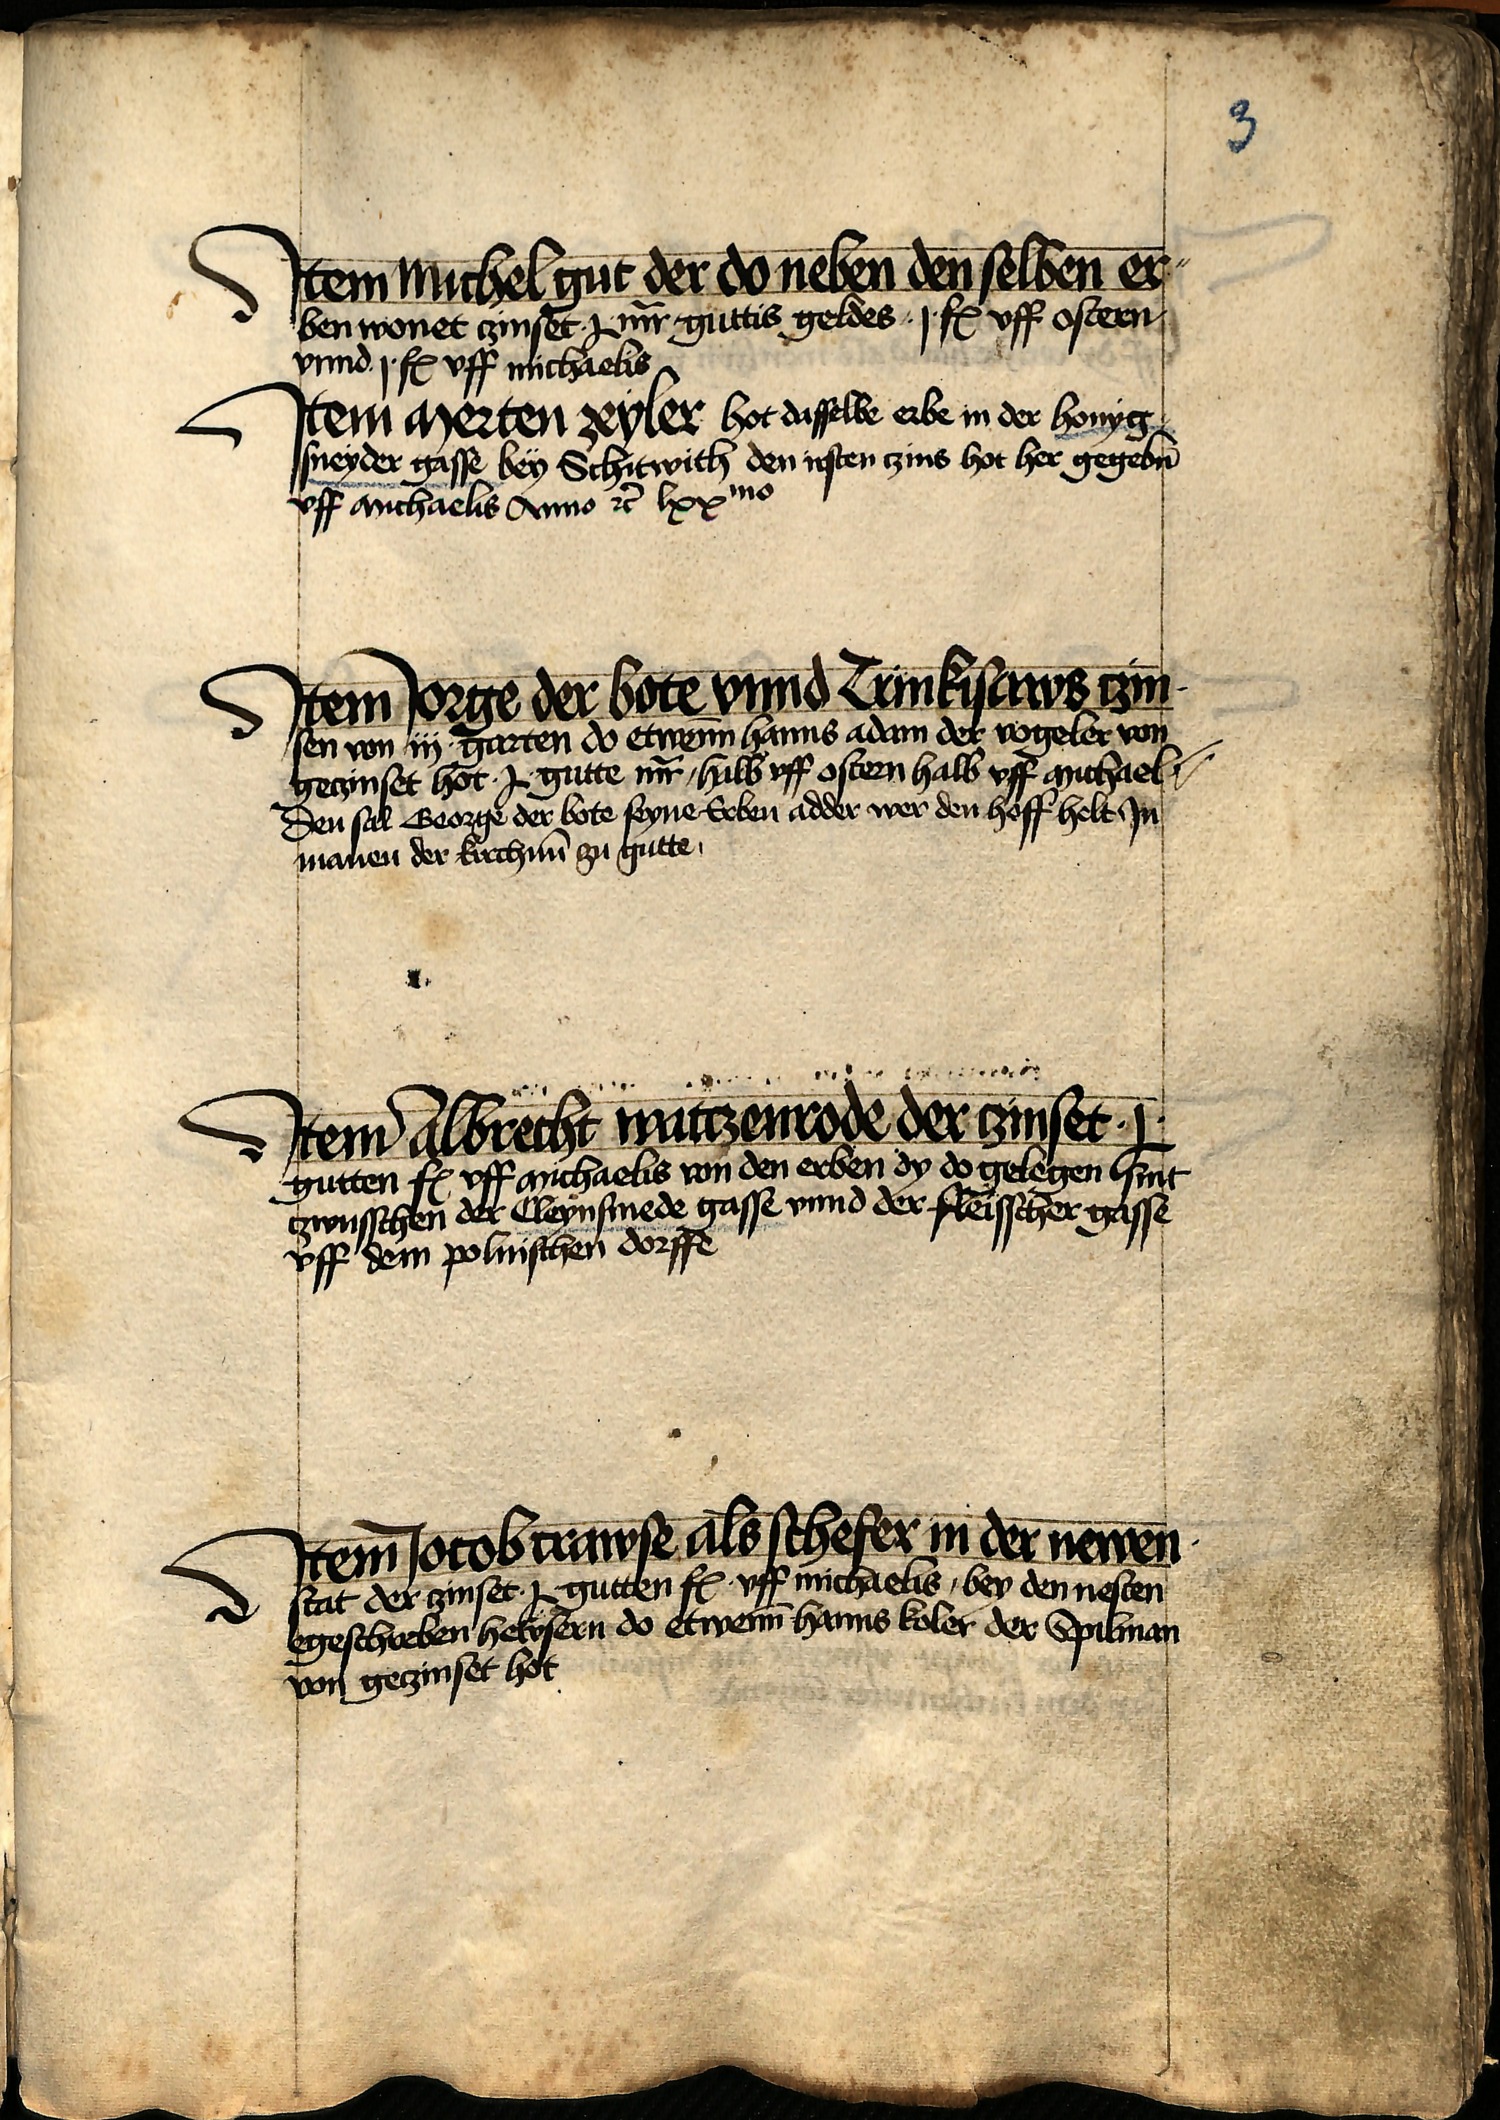 3
Item Michel gut der do neben den selben er-
ben wonet czinset · j · mr̄ · guttis geldes · j · f͛ uff ostern
vnnd j · f͛ vff michaelis
Item Merten zeyler hot dasselbe erbe in der honyg
sneyder gasse bey Schitwith den irsten czins hot her gegebn̄
vff Michaelis Anno rc̄ lxx mo
Item Jorge der bote vnnd Trinkisaws czin-
sen von iij garten do etwenn̄ hanns adam der vogeler von
geczinset hot · j · gutte mr̄ / halb vff ostern halb vff Michael
Den sal George der bote seyne Erben adder wer den hoff helt In
manen der kirchnn̄ zu gutte
Item Albrecht watczenrode der czinset · j ·
gutten f͛ vff Michaelis von den erben dy do gelegen sint
czwusschen der Cleynsmede gasse vnnd der fleisscher gasse
vff dem polnischen dorffe
Item Jocob crawse als schefer in der newen
stat der czinset · j · gutten f͛ · vff michaelis / bey den nesten
egeschreben hewsern do etwenn̄ hanns koler der Spilman
von geczinset hot